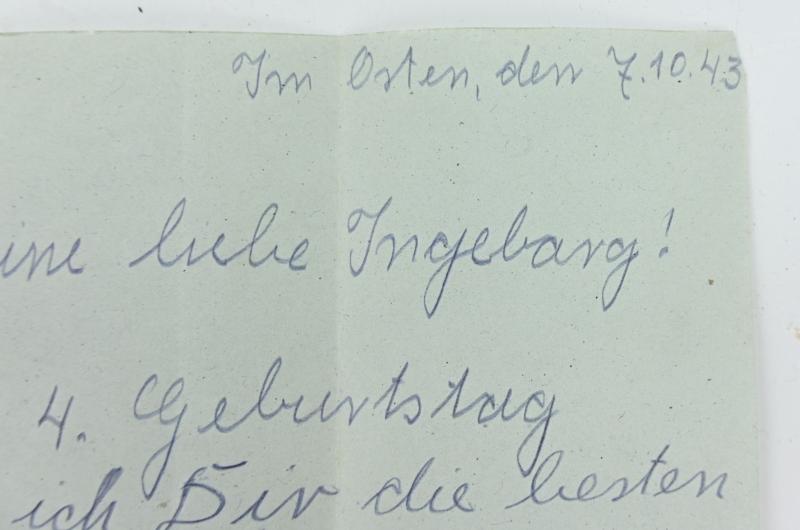 Im Osten, den 7.10.43
ine liebe Ingeborg!
4. Geburtstag
ich Dir die besten